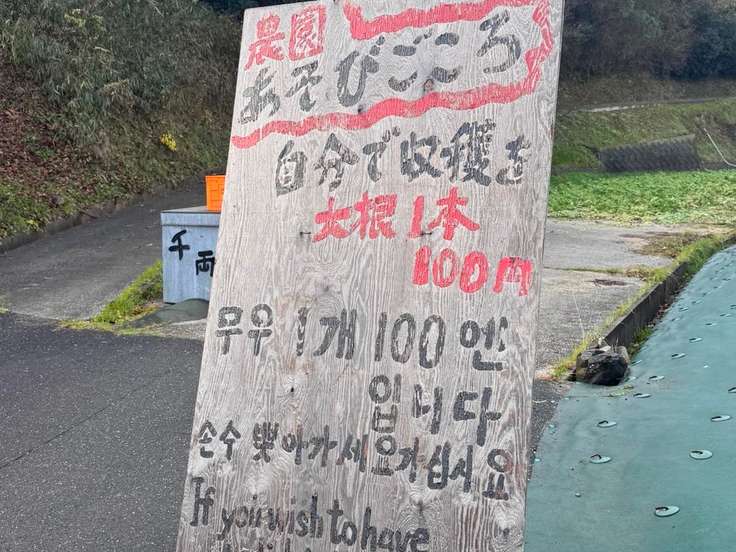 農園
あそびごころ
自分で収穫を
大根1本
100円
千両
무우 1개 100엔
입니다
손수 뽑아가세요가십시요
If you wish to have